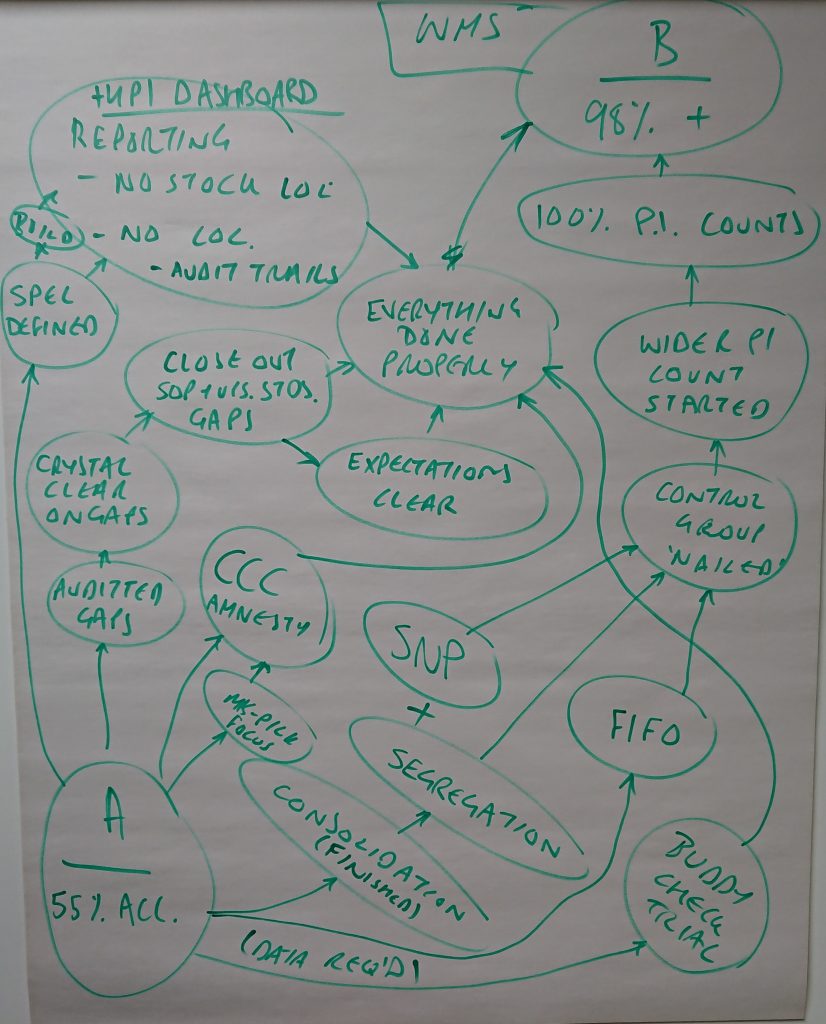 WMS
B
98% +
+4PI DASHBOARD
REPORTING
- NO STOCK LOC
- NO LOC.
- AUDIT TRAILS
BUILD
SPEC
DEFINED
100% P.I. COUNTS
EVERYTHING
DONE
PROPERLY
WIDER PI
COUNT
STARTED
CLOSE OUT
SOP + VIS. STDS.
GAPS
EXPECTATIONS
CLEAR
CRYSTAL
CLEAR
ON GAPS
CONTROL
GROUP
'NAILED'
AUDITTED
GAPS
CCC
AMNESTY
SNP
+
SEGREGATION
FIFO
PICK
FOCUS
CONSOLIDATION
(FINISHED)
A
55% ACC.
(DATA REQ'D)
BUDDY
CHECK
TRIAL